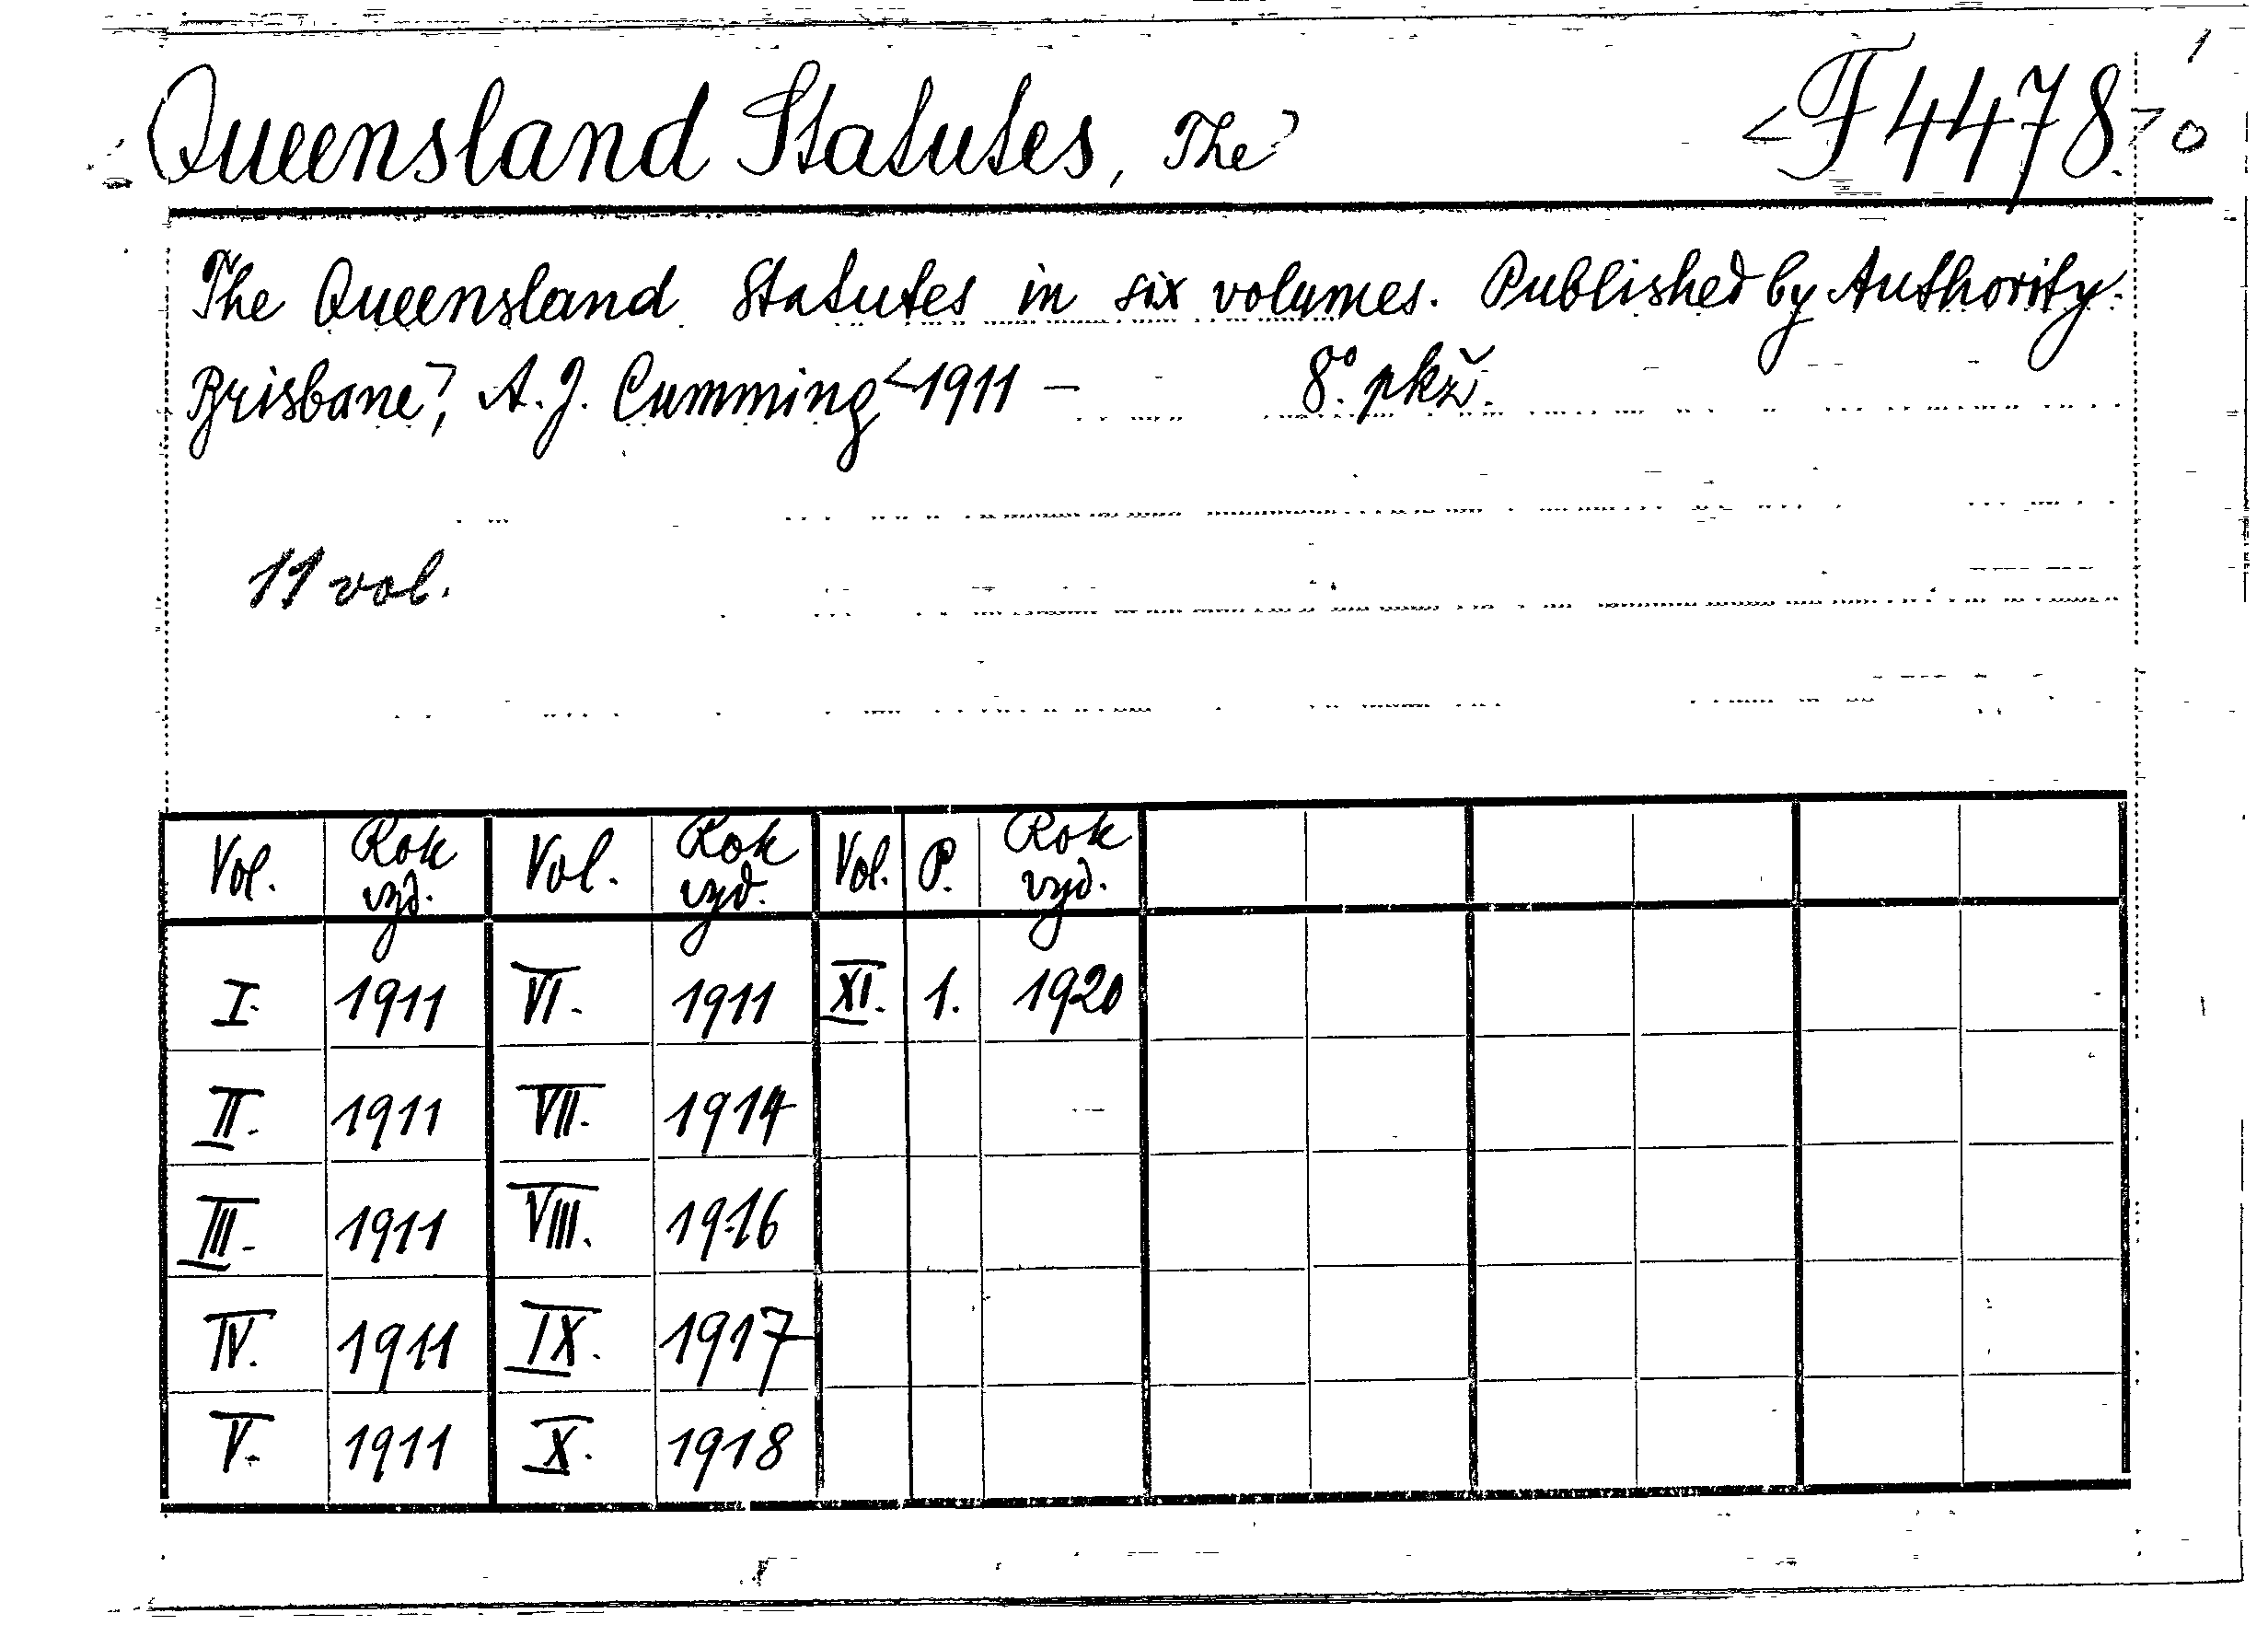 Queensland Statutes, The <F 4478.> 0 1
The Queensland Statutes in six volumes. Published by Authority.
Brisbane>, A. J. Cumming <1911 – 8°. pkž.
11 vol.
Vol. Rok vyd. Vol. Rok vyd. Vol. P. Rok vyd.
I. 1911 VI. 1911 XI. 1. 1920
II. 1911 VII. 1914
III. 1911 VIII. 1916
IV. 1911 IX. 1917
V. 1911 X. 1918